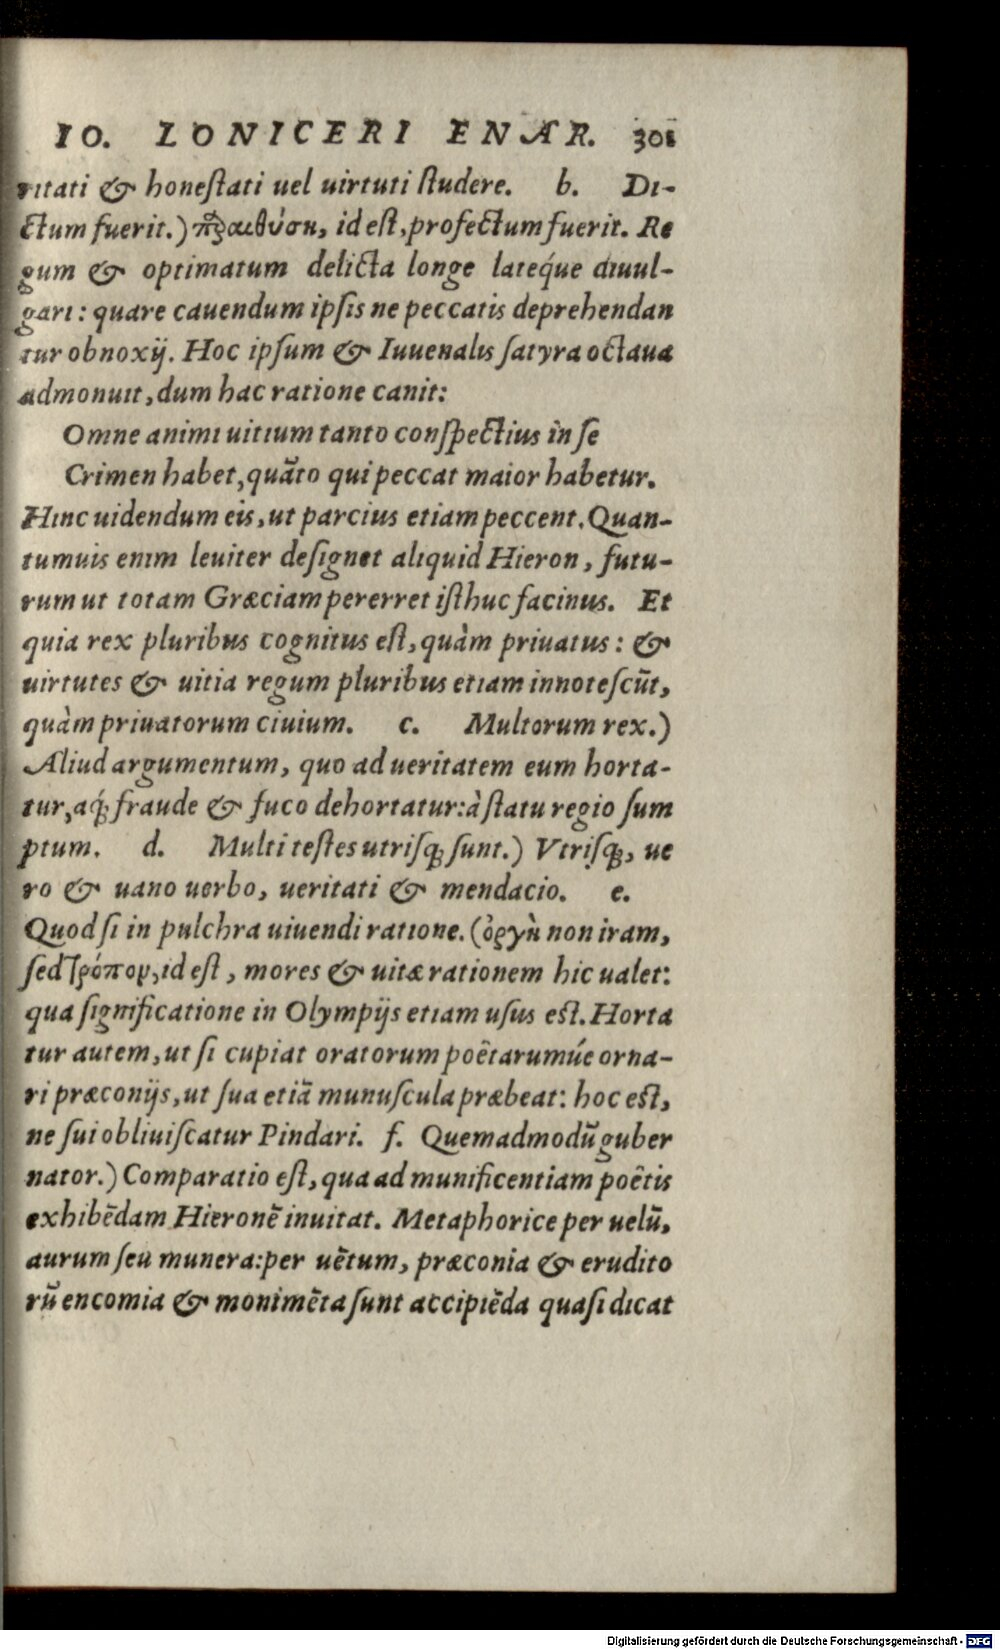 IO. LONICERI ENAR. 301
ritati & honeſtati uel uirtuti ſtudere. b. Di-
ctum fuerit.) πραιθύσῃ, id est, profectum fuerit. Re
gum & optimatum delicta longe lateq́ue diuul-
gari: quare cauendum ipſis ne peccatis deprehendan
tur obnoxij. Hoc ipſum & Iuuenalis ſatyra octaua
admonuit, dum hac ratione canit:
Omne animi uitium tanto conſpectius in ſe
Crimen habet, quãto qui peccat maior habetur.
Hinc uidendum eis, ut parcius etiam peccent. Quan-
tumuis enim leuiter deſignet aliquid Hieron, futu-
rum ut totam Græciam pererret iſthuc facinus. Et
quia rex pluribus cognitus eſt, quàm priuatus: &
uirtutes & uitia regum pluribus etiam innoteſcũt,
quàm priuatorum ciuium. c. Multorum rex.)
Aliud argumentum, quo ad ueritatem eum horta-
tur, aq́; fraude & fuco dehortatur: à ſtatu regio ſum
ptum. d. Multi teſtes utriſq; ſunt.) Vtriſq;, ue
ro & uano uerbo, ueritati & mendacio. e.
Quod ſi in pulchra uiuendi ratione. (ὀργὴ non iram,
ſed τρόπον, id eſt, mores & uitæ rationem hic ualet:
qua ſignificatione in Olympijs etiam uſus eſt. Horta
tur autem, ut ſi cupiat oratorum poëtarumúe orna-
ri præconijs, ut ſua etiã munuſcula præbeat: hoc eſt,
ne ſui obliuiſcatur Pindari. f. Quemadmodũ guber
nator.) Comparatio eſt, qua ad munificentiam poëtis
exhibẽdam Hieronẽ inuitat. Metaphorice per uelũ,
aurum ſeu munera: per uẽtum, præconia & erudito
rũ encomia & monimẽta ſunt accipiẽda quaſi dicat
Digitalisierung gefördert durch die Deutsche Forschungsgemeinschaft - DFG